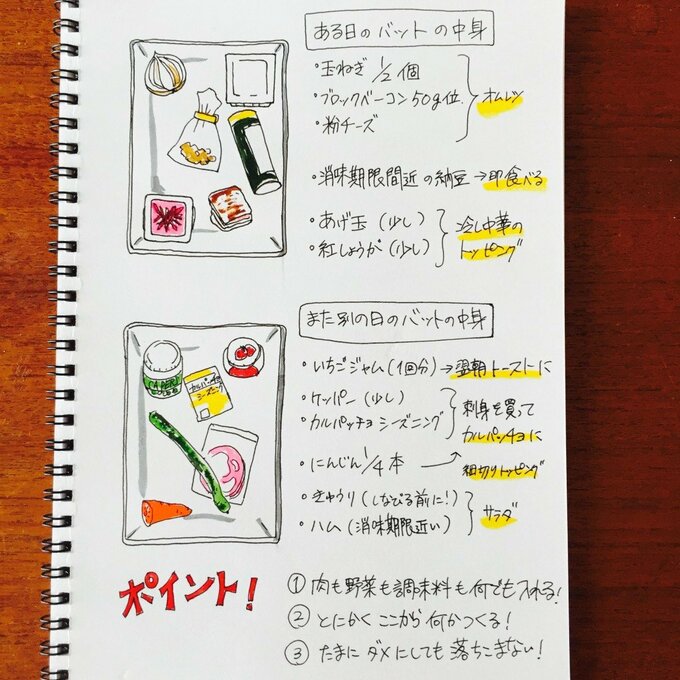 ある日のバットの中身
・玉ねぎ 1/2個
・ブロックベーコン50g位
・粉チーズ
オムレツ
・消味期限間近の納豆→即食べる
・あげ玉(少し)
・紅しょうが(少し)
冷し中華の
トッピング
また別の日のバットの中身
・いちごジャム(1回分)→翌朝トーストに
・ケッパー(少し)
・カルパッチョシーズニング
刺身を買って
カルパッチョに
・にんじん1/4本
細切りトッピング
・きゅうり(しなびる前に!)
・ハム(消味期限近い)
サラダ
CAPER
カルパッチョ
シーズニング
ポイント!
①肉も野菜も調味料も何でも入れる!
②とにかくここから何かつくる!
③たまにダメにしても落ちこまない!